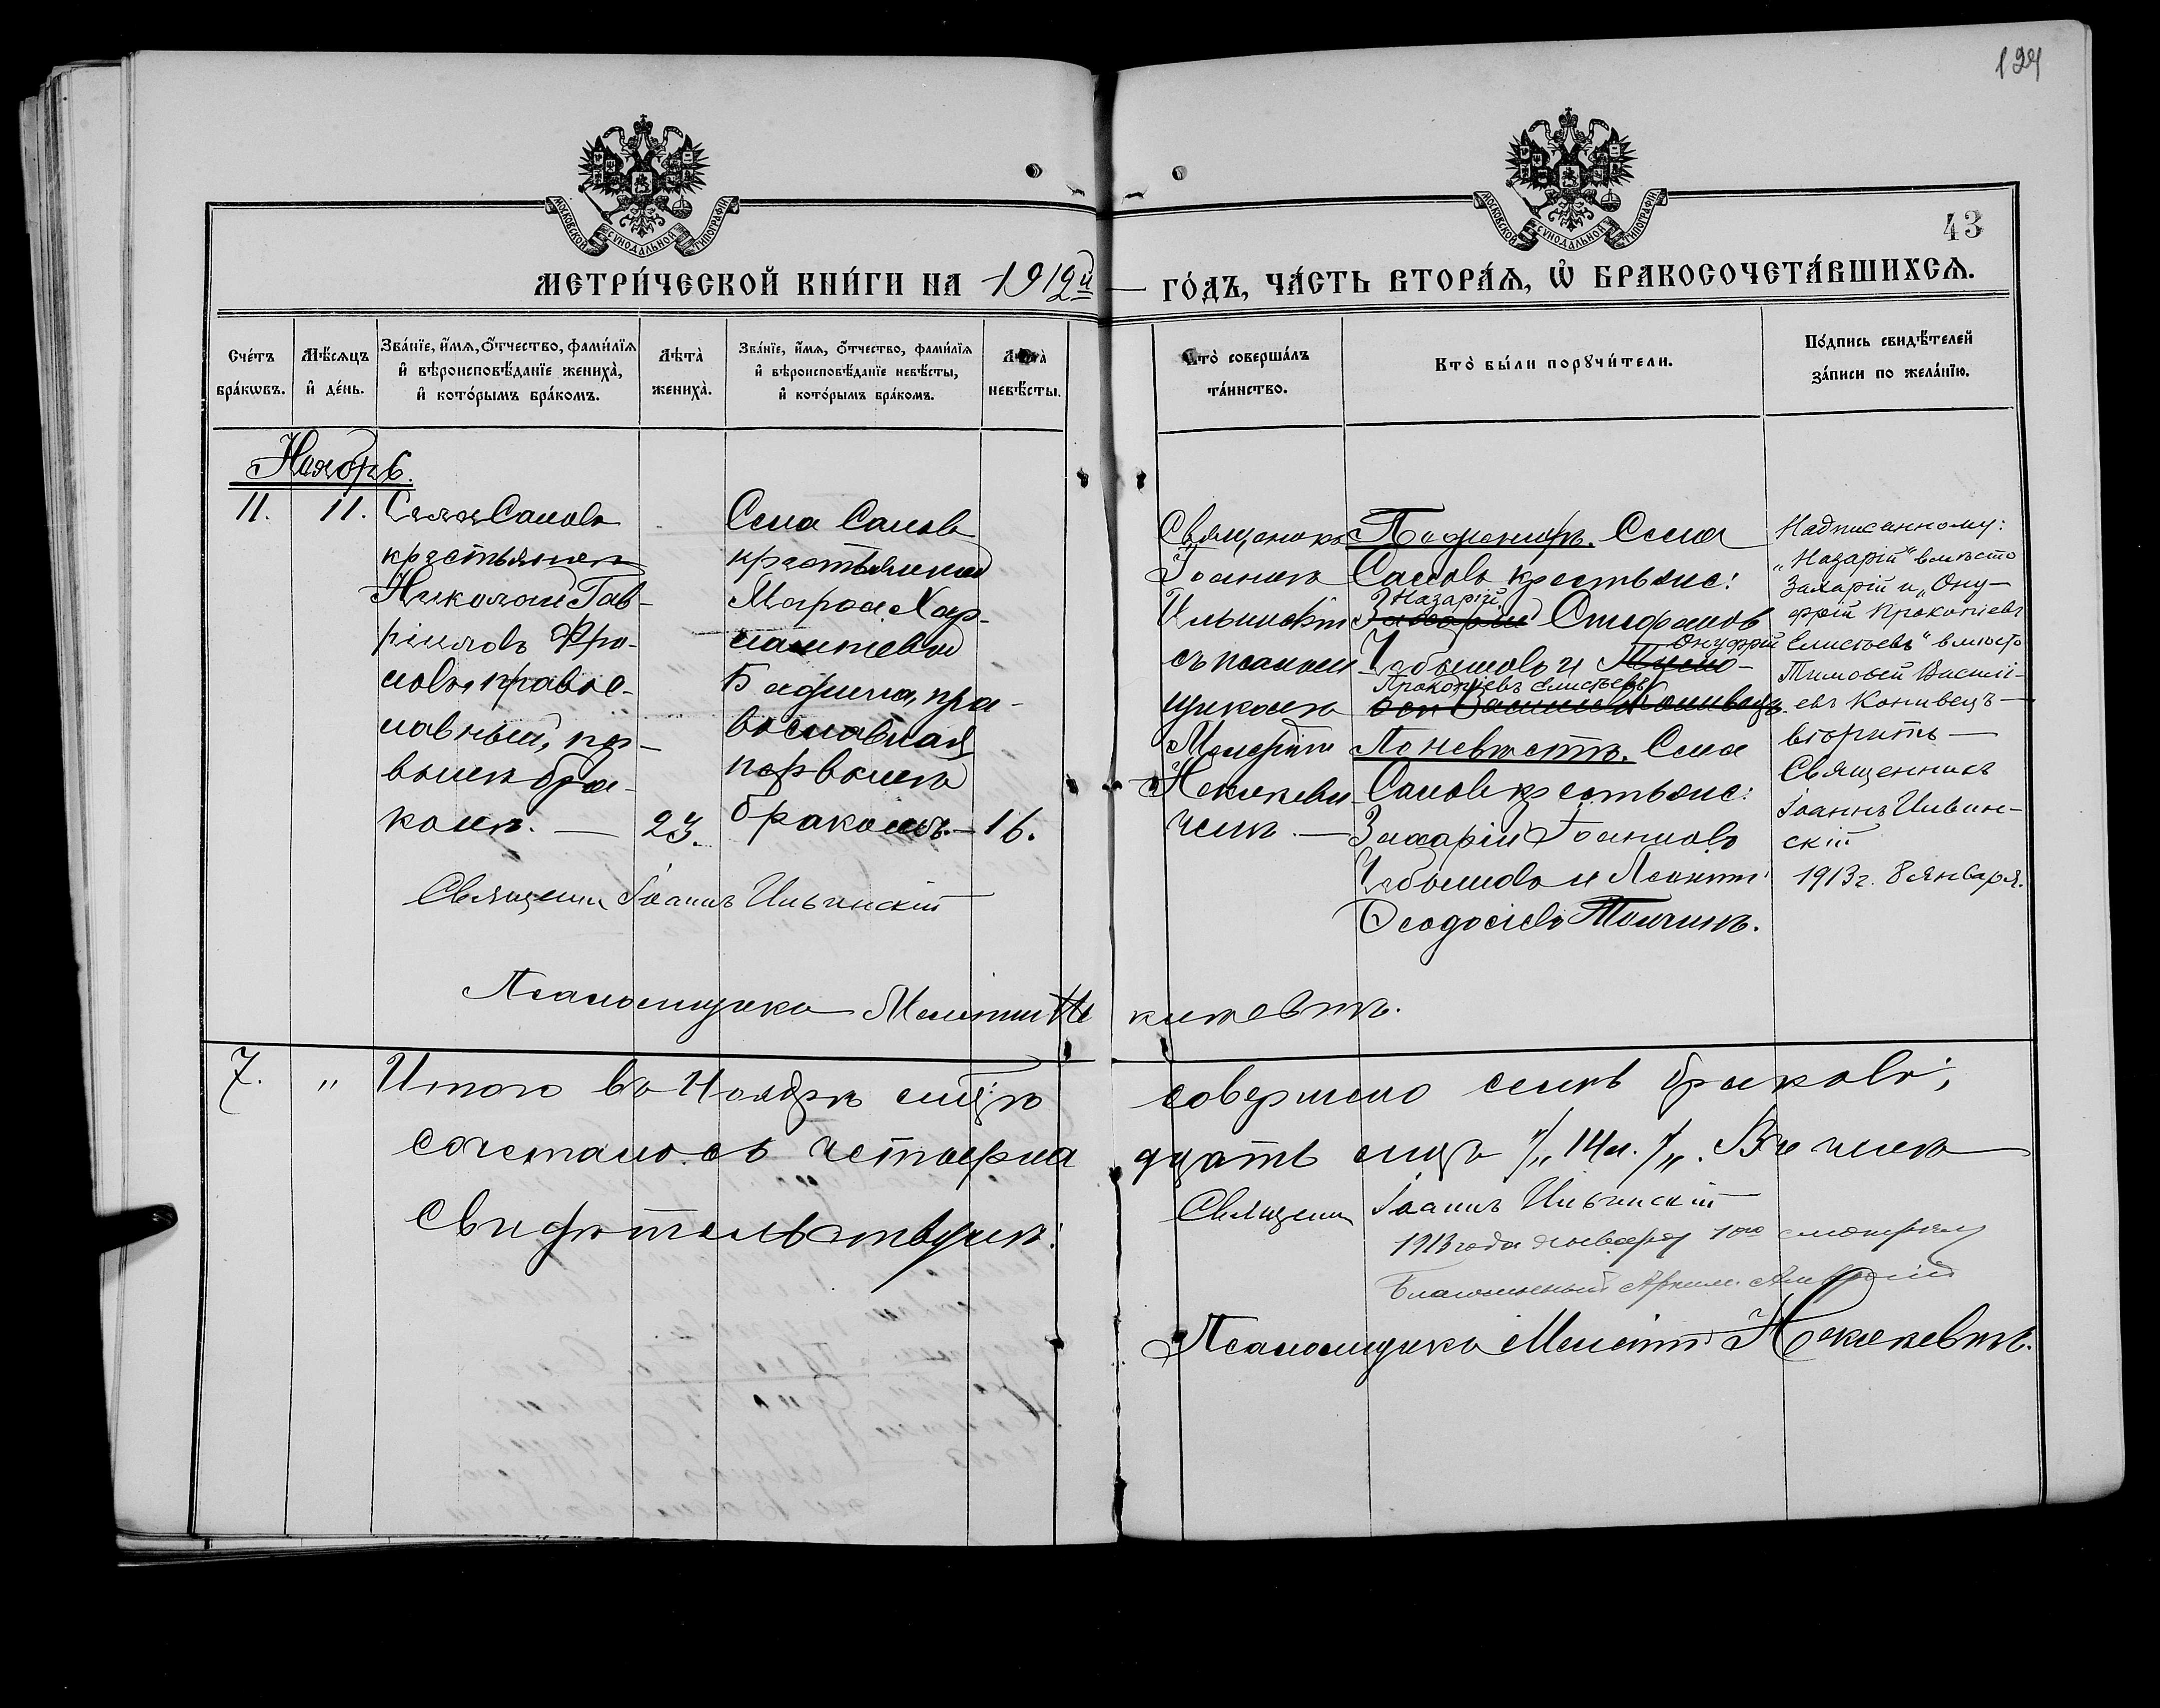 124
МОСКОВСКОЙ СѴНОДАЛЬНОЙ ТИПОГРАФІИ
МОСКОВСКОЙ СѴНОДАЛЬНОЙ ТИПОГРАФІИ
43
МЕТРИ́ЧЕСКОЙ КНИ́ГИ НА 1912й ГО́ДЪ, ЧА́СТЬ ВТОРА́Ѧ, Ѽ БРАКОСОЧЕТА́ВШИХСѦ.
Сче́тъ бра́кѡвъ.
Мѣ́сѧцъ и҆ де́нь.
Зва́нїе, и҆́мѧ, ѻ҆́тчество, фами́лїѧ
и҆ вѣроисповѣ́данїе жениха̀,
и҆ кото́рымъ бра́комъ.
Лѣ́та̀ жениха̀.
Зва́нїе, и҆́мѧ, ѻ҆́тчество, фами́лїѧ
и҆ вѣроисповѣ́данїе невѣ́сты,
и҆ кото́рымъ бра́комъ.
Лѣ́та̀ невѣ́сты.
Кто̀ соверша́лъ
та́инство.
Кто̀ бы́ли порꙋчи́тели.
По́дпись свидѣ́телей
за́писи по жела́нїю.
Ноябрь.
11.
11.
Села Самовъ
крестьянинъ
Николай Гав-
ріиловъ
правос-
лавный, пер-
вымъ бра-
комъ. —
23.
Села Самовъ
крестьянка
Марфа Хар-
лампіева
пра-
вославная
первымъ
бракомъ. —
16.
Священикъ
Іоаннъ
Ильинскій
съ псалом-
щикомъ
Мелетіемъ
чемъ. —
По женихѣ. Села
Самовъ крестьяне:
Назарій
Захарій Стефановъ
Онуфрій
и Тимо-
Прокопіевъ Елисѣевъ
ѳей Василіевъ Конивецъ.
По невѣстѣ. Села
Самовъ крестьяне:
Захарій Іоанновъ
и Леонтій
Ѳеодосіевъ
Надписанному:
„Назарій" вмѣсто
Захарій и „Ону-
фрій Прокопіевъ
Елисѣевъ" вмѣсто
Тимоѳей Василі-
евъ Конивецъ —
вѣрить —
Священникъ
Іоаннъ Ильин-
скій
1913 г. 8 января.
Священникъ Іоаннъ Ильинскій
Псаломщикъ Мелетій
7.
„
Итого въ Ноябрѣ мѣсяцѣ совершено семь браковъ;
сочеталось четырнадцать лицъ /„14„/. Въ чемъ
свидѣтельствуемъ:
Священникъ Іоаннъ Ильинскій
1913 года января 10го смотрѣлъ
Благочинный
Псаломщикъ Мелетій